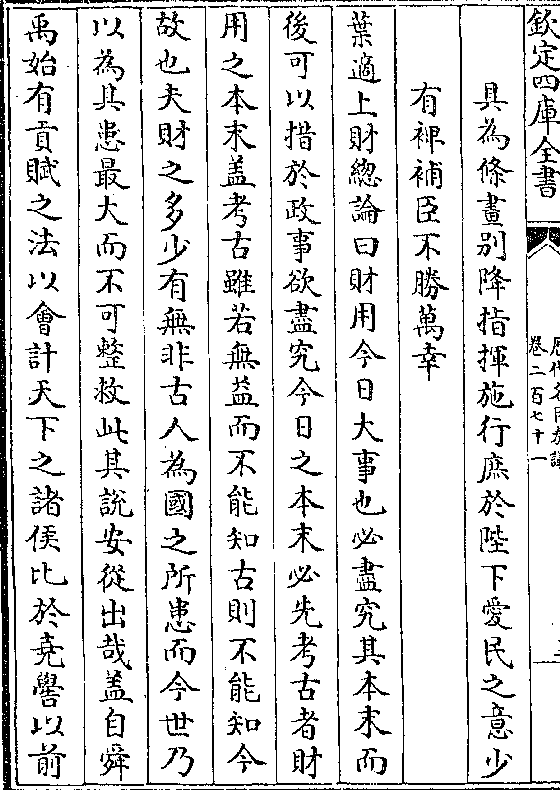 欽定四庫全書
卷二百七十一
具為條畫別降指揮施行庶於陛下愛民之意少
有裨補臣不勝萬幸
葉適上財總論曰財用今日大事也必盡究其本末而
後可以措於政事欲盡究今日之本末必先考古者財
用之本末盖考古雖若無益而不能知古則不能知今
故也夫財之多少有無非古人為國之所患而今世乃
以為其患最大而不可整救此其說安從出哉盖自舜
禹始有貢賦之法以會計天下之諸侯比於堯嚳以前